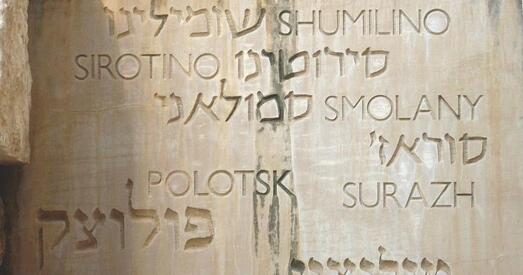 שומילינו SHUMILINO
SIROTINO סירוטינו
סמולאני SMOLANY
סוראז'
POLOTSK SURAZH
פולוצק